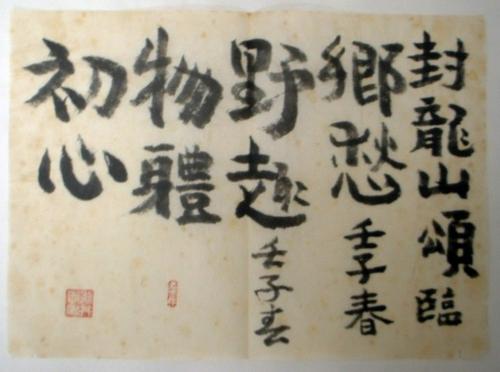 封龍山頌臨
鄉愁壬子春
野趣壬子春
物體
初心